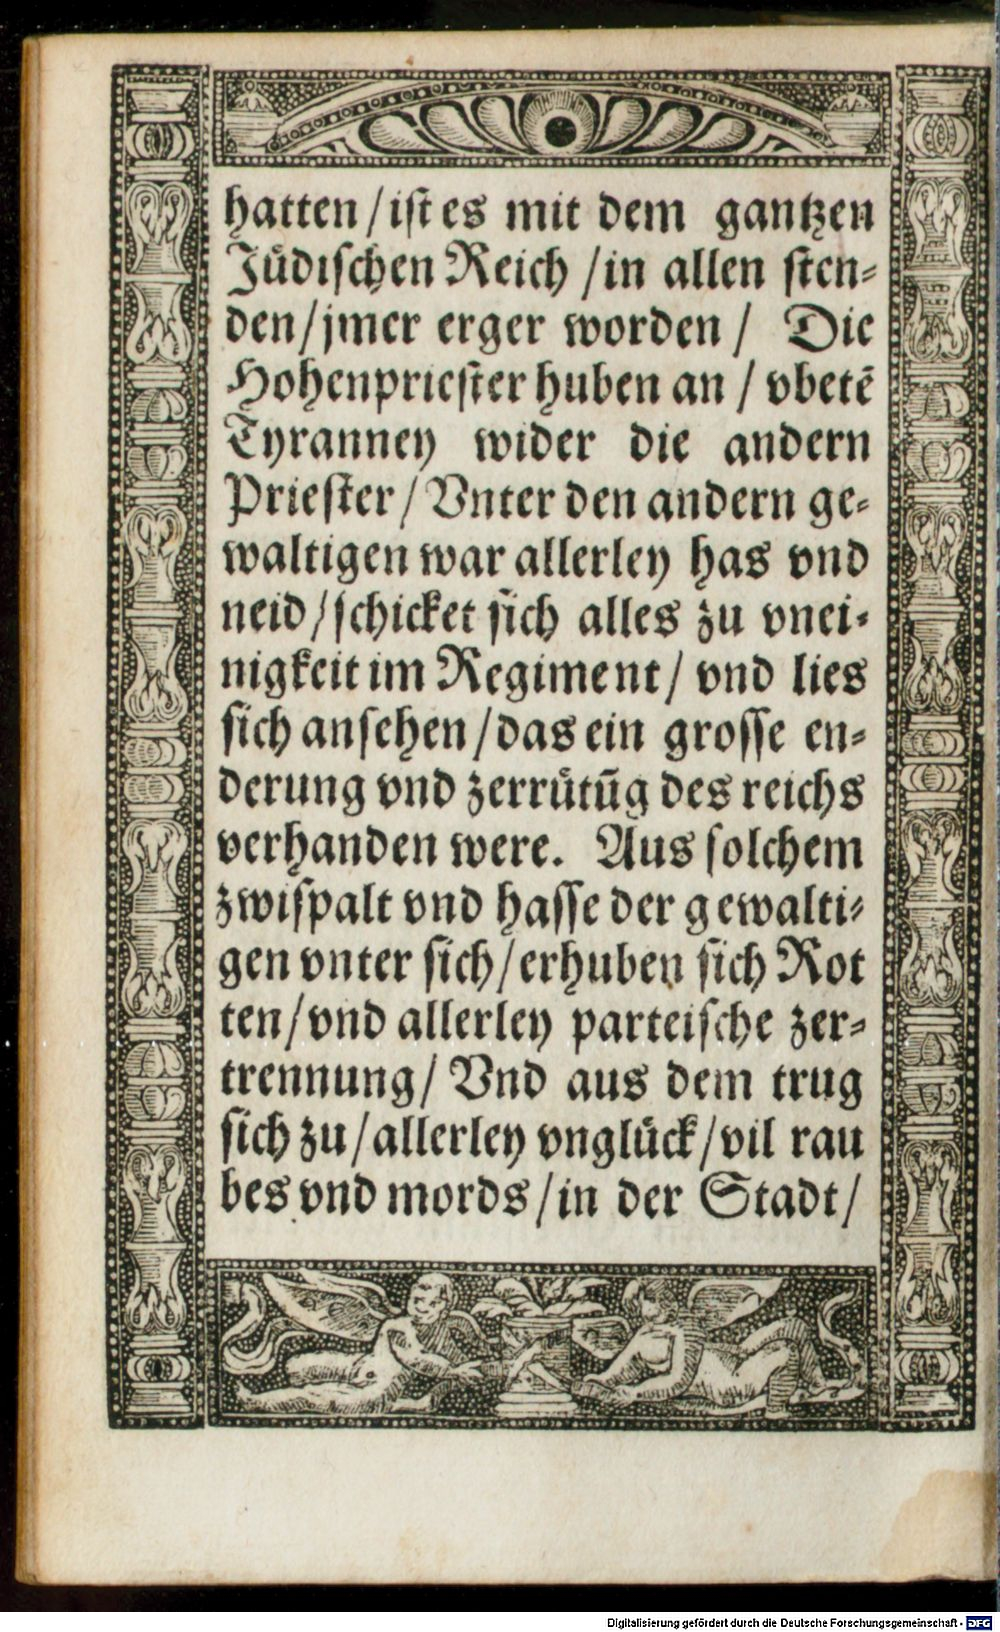 hatten /ist es mit dem gantzen
Jüdischen Reich /in allen sten⸗
den/jmer erger worden / Die
Hohenpriester huben an / vbetē
Tyranney wider die andern
Priester/ Vnter den andern ge⸗
waltigen war allerley has vnd
neid/schicket sich alles zu vnei⸗
nigkeit im Regiment/ vnd lies
sich ansehen/das ein grosse en⸗
derung vnd zerrütūg des reichs
verhanden were. Aus solchem
zwispalt vnd hasse der gewalti⸗
gen vnter sich/erhuben sich Rot
ten/vnd allerley parteische zer⸗
trennung/ Vnd aus dem trug
sich zu/allerley vnglück/vil rau
bes vnd mords/in der Stadt/
Digitalisierung gefördert durch die Deutsche Forschungsgemeinschaft - DFG